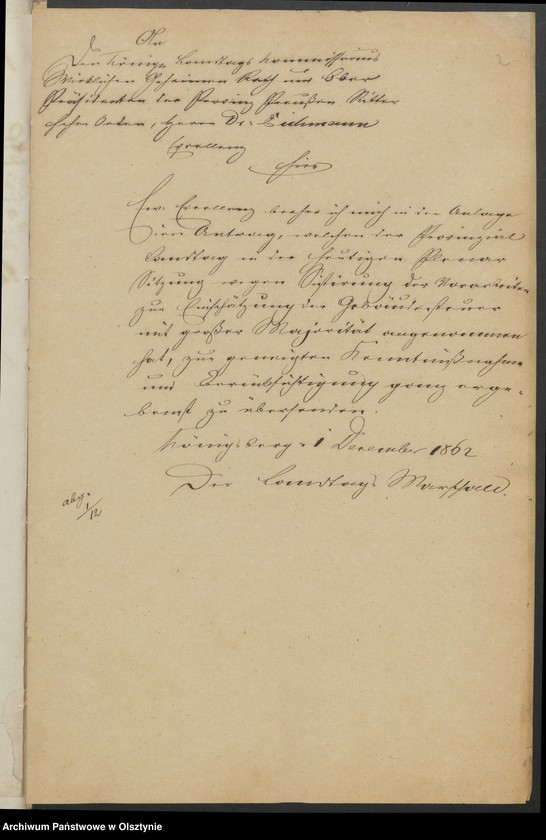 2
An
Den Königl. Landtags Kommissarius
Wirklichen Geheimen Rath und Ober
Präsidenten der Provinz Preußen Ritter
hoher Orden, Herrn Dr. Eichmann
Excellenz
hier
Ew. Excellenz beehre ich mich in der Anlage
den Antrag, welchen der Provinzial
Landtag in der heutigen Plenar
Sitzung wegen Sistirung der Vorarbeiten
zur Einschätzung der Gebäudesteuer
mit großer Majorität angenommen
hat, zur geneigten Kenntnißnahme
und Berücksichtigung ganz erge-
benst zu übersenden.
Königsberg 1 December 1862
Der Landtags Marschall.
abg. 1/12
Archiwum Państwowe w Olsztynie